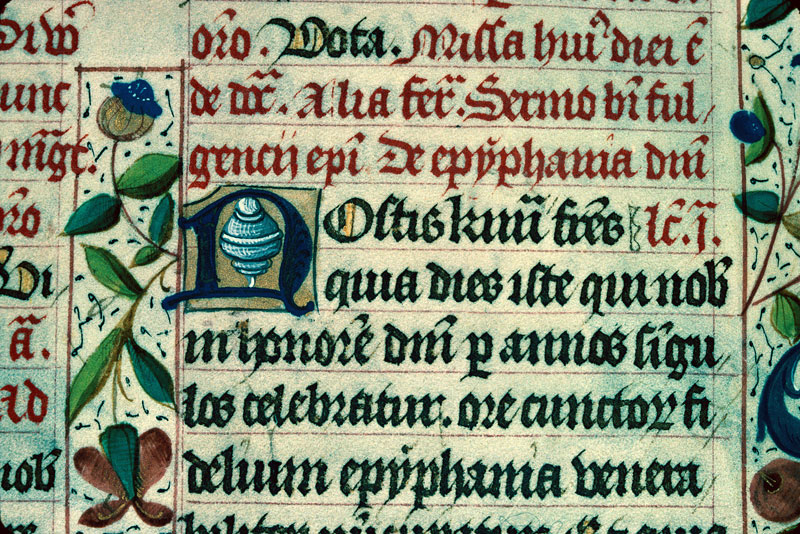 oro. Vota. Missa hui9 diei e
de dca. Alia fer. Sermo bti ful
gencij epi De epyphania dni
NOstis kmi fres lc. j.
quia dies iste qui nob
in honore dni p annos sigu
los celebratur. ore cunctoꝝ fi
delium epyphania venera
unc
mgr.
oro
Di
a.
Ad
nob